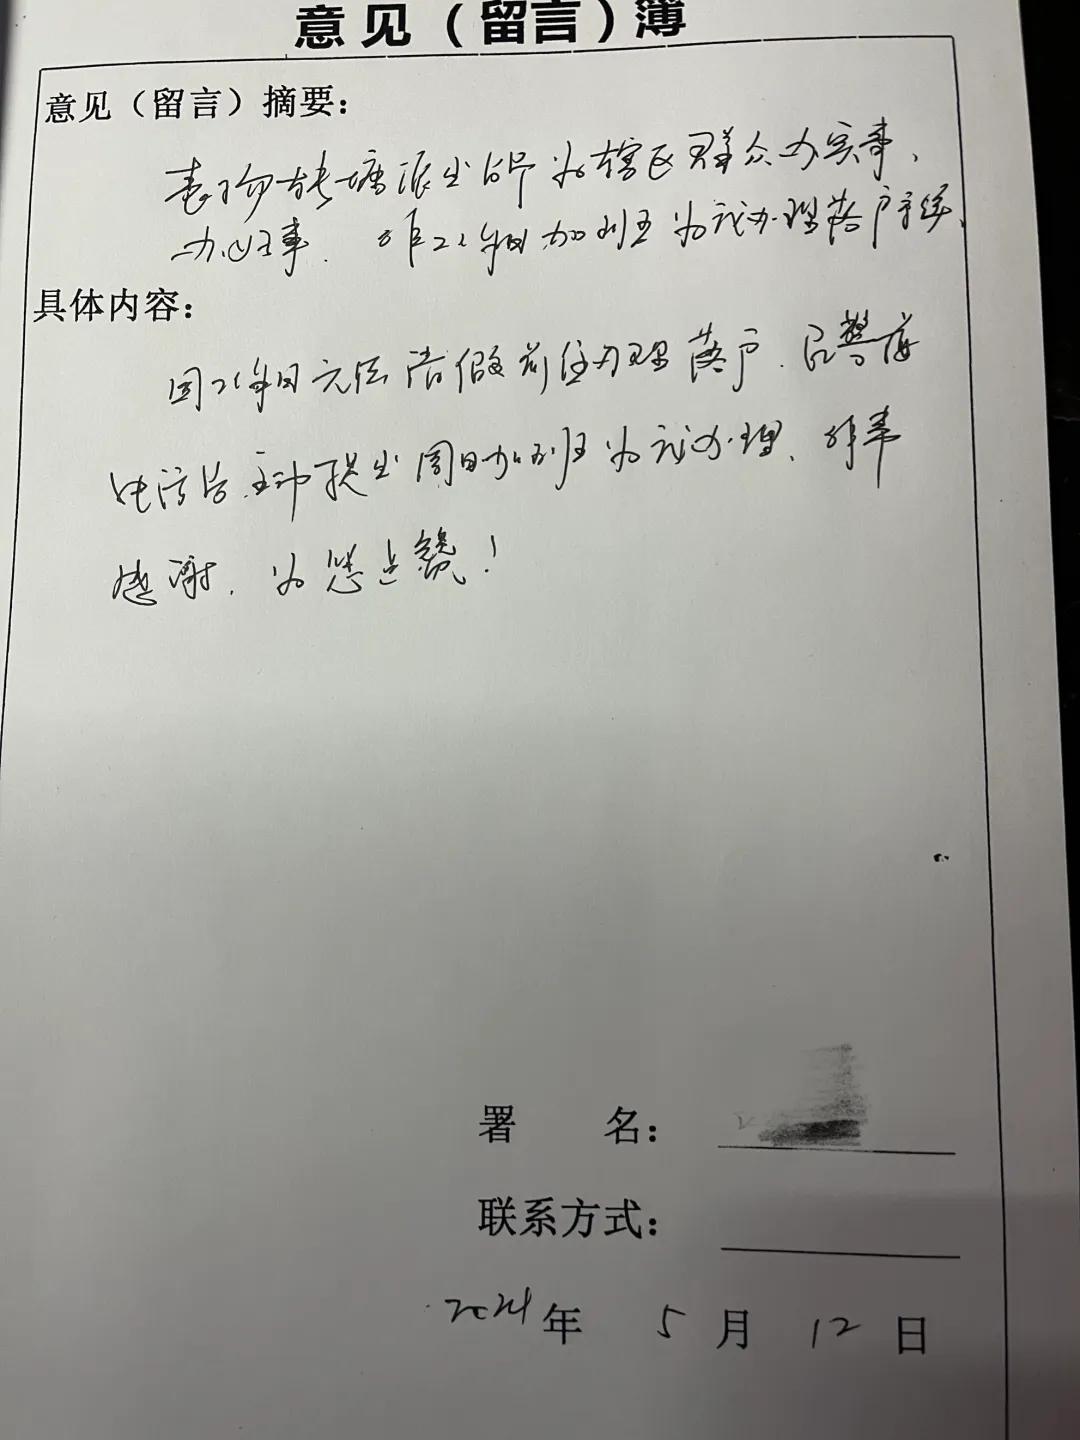 意见（留言）簿
意见（留言）摘要：
表扬转塘派出所为辖区群众办实事、
办好事. 非工作日加班为我办理落户手续.
具体内容：
因工作日无法请假前往办理落户. 民警
后.主动提出周日加班为我办理、非常
感谢. 为您点赞！
署 名：
联系方式：
2024年 5 月 12 日